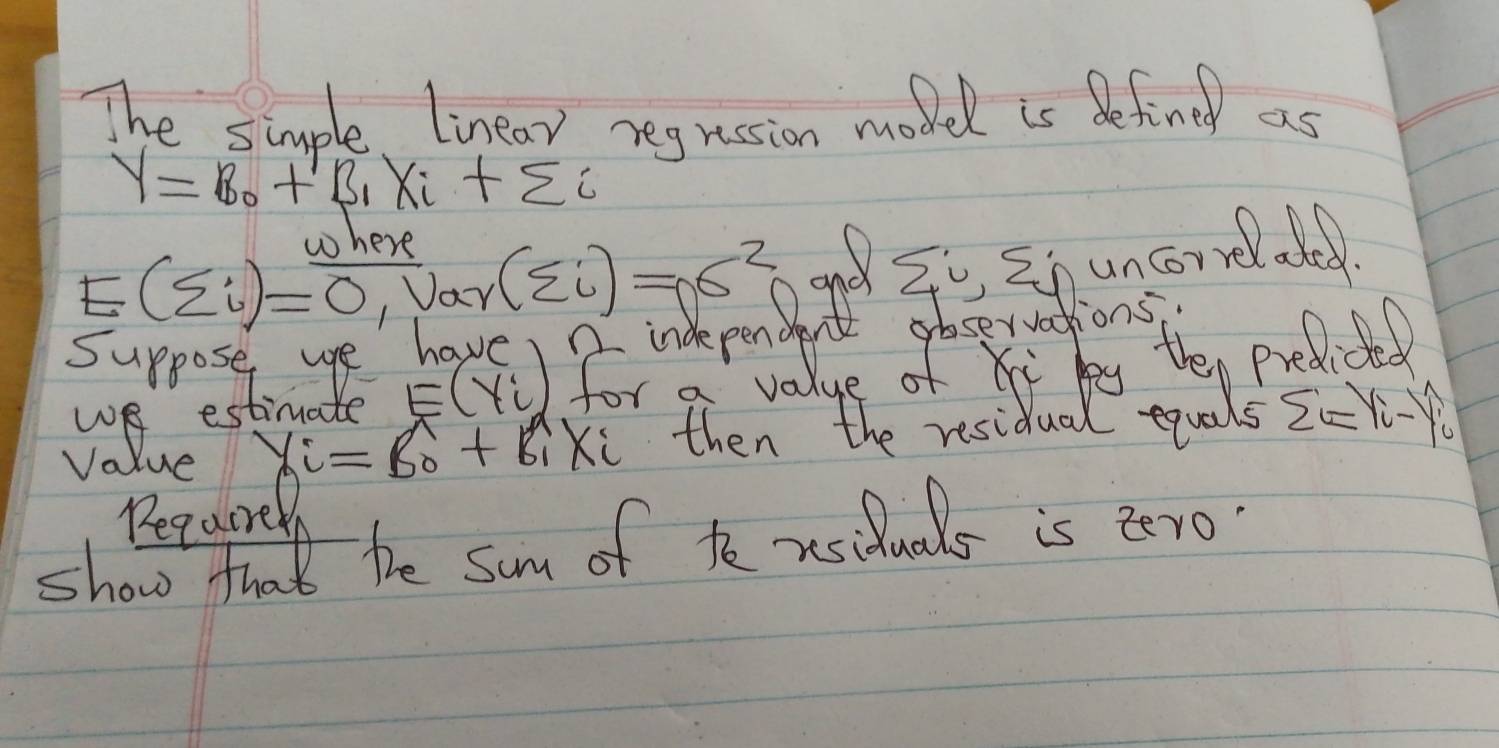 The simple linear regression model is defined as
Y = B₀ + B₁ Xi + Σi
where
E(Σi) = 0, Var(Σi) = σ², and Σi, Σj uncorrelated.
Suppose we have n independent observations.
we estimate E(Yi) for a value of Xi by the predicted
value Ŷi = B̂₀ + B̂₁ Xi then the residual equals Σi = Yi - Ŷi
Required
show that the sum of te residuals is zero.